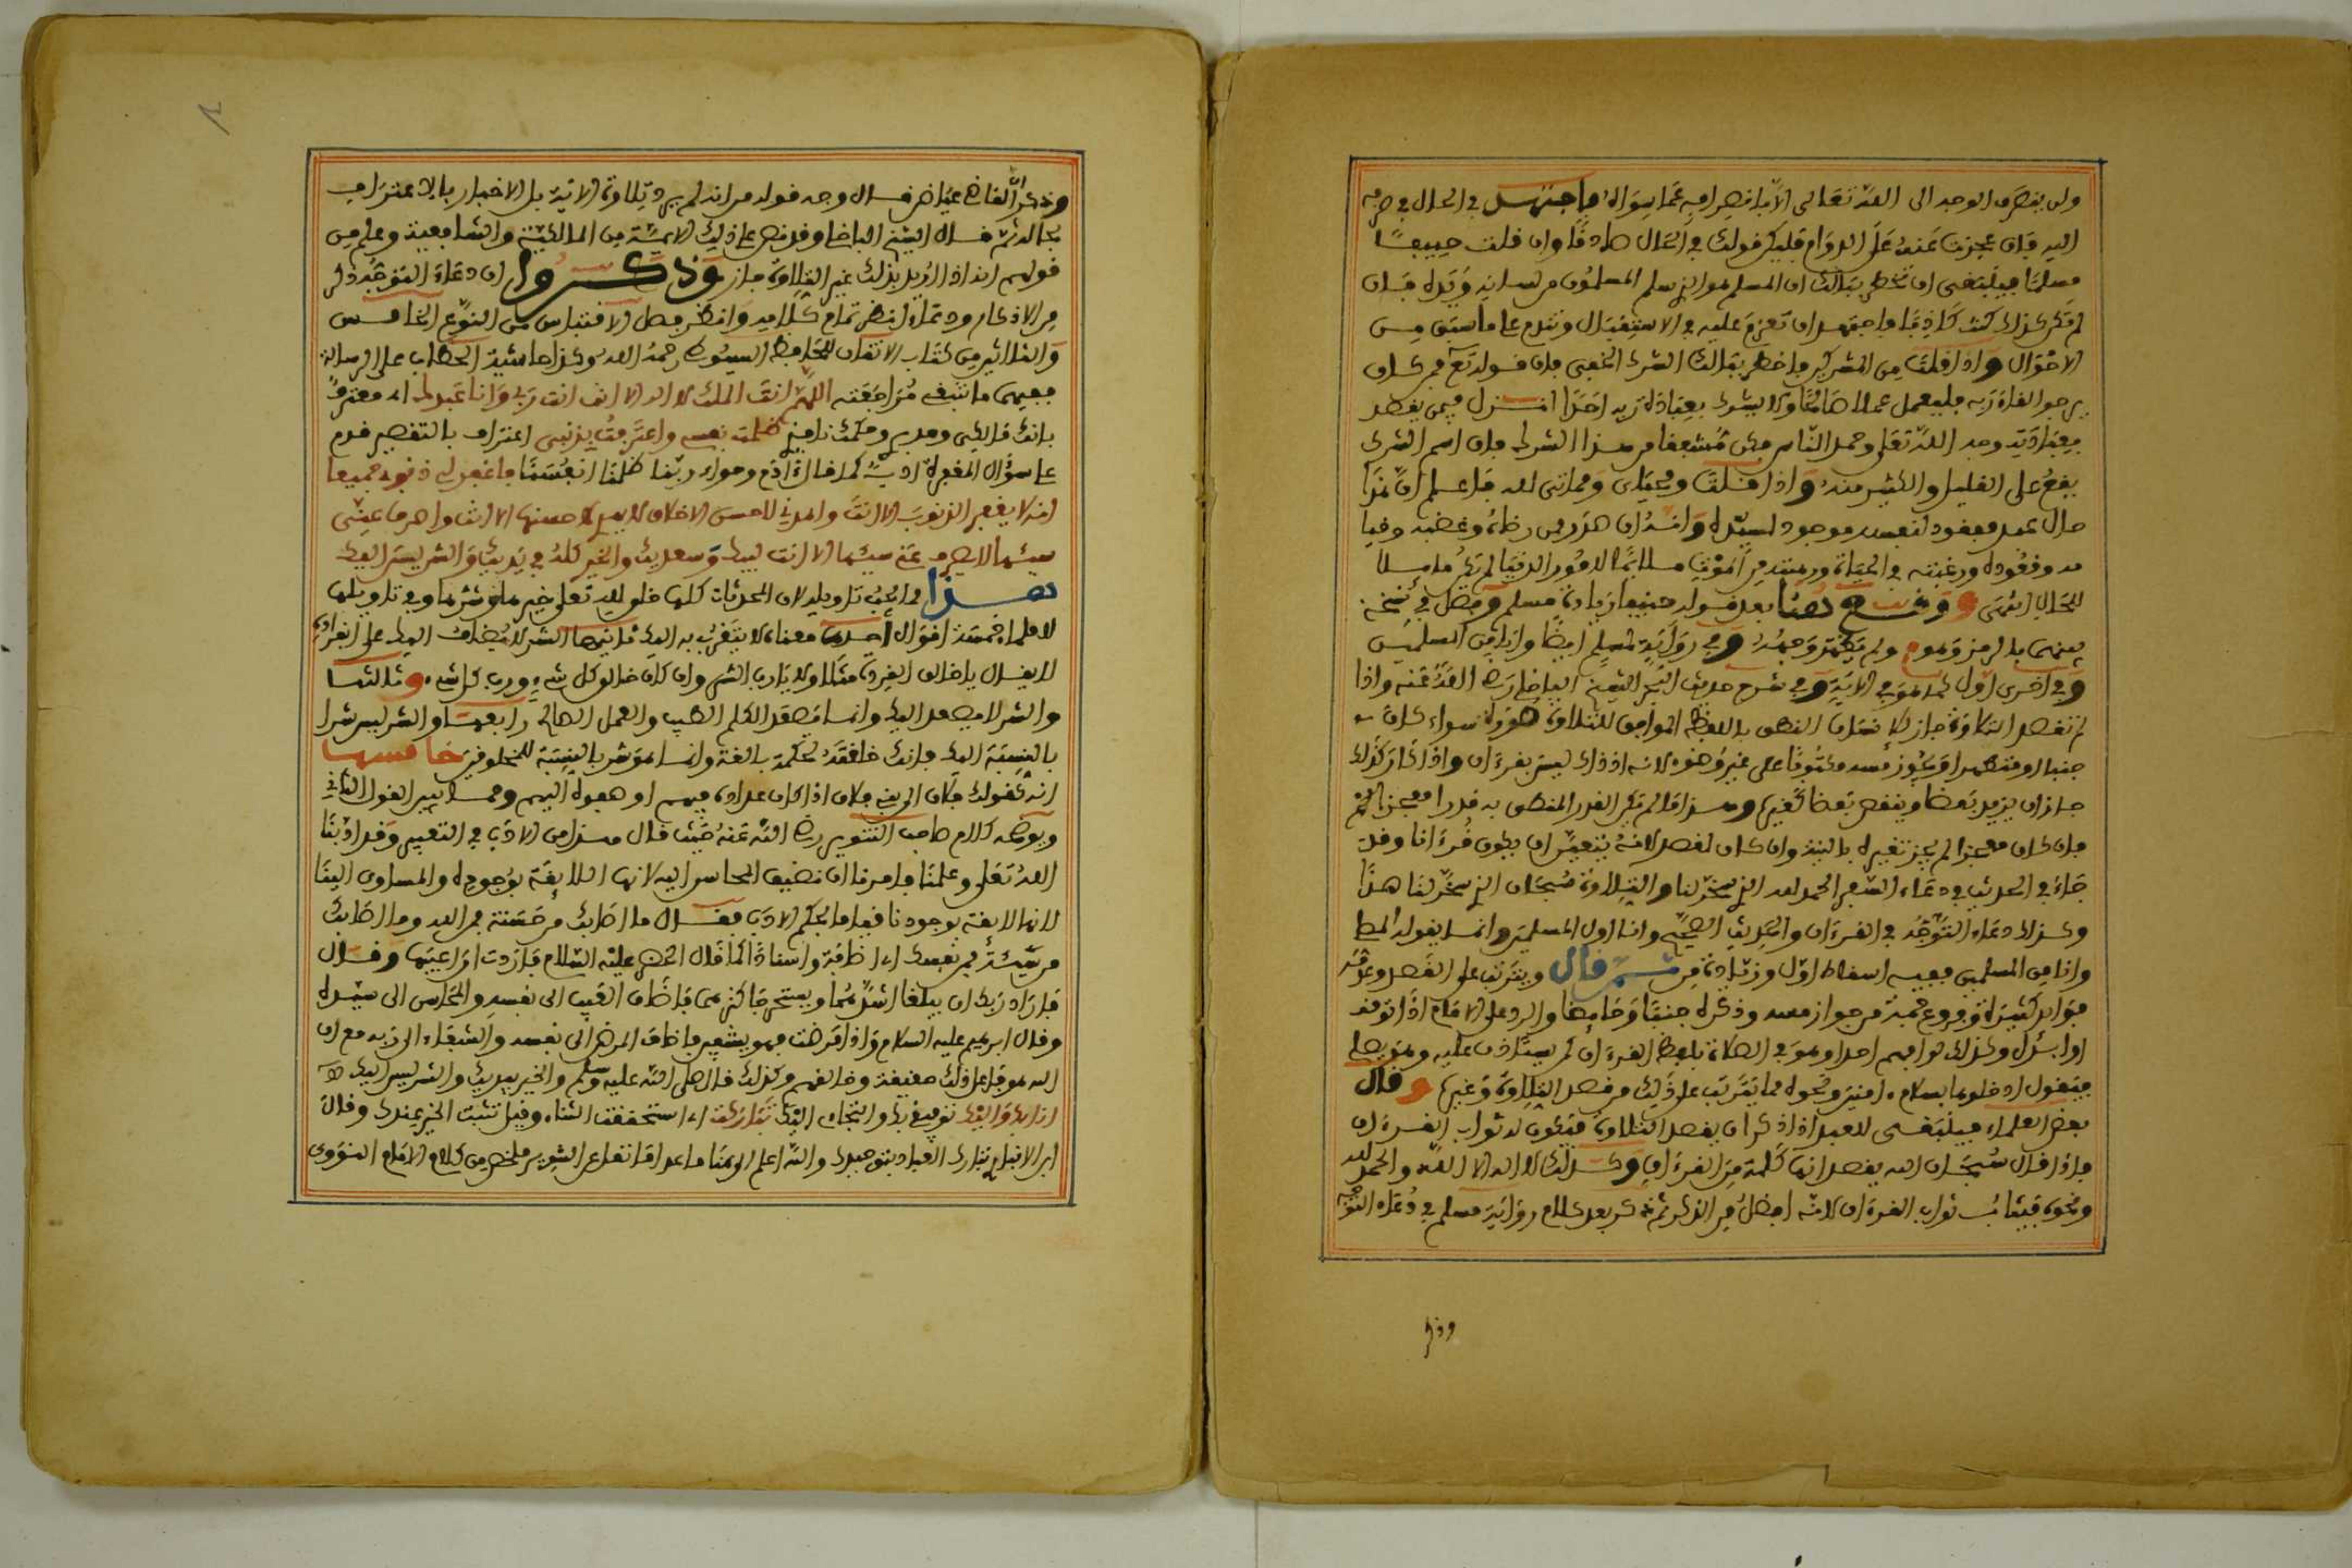 ولن يتصرف الوجه الى الله تعالى الا بانصرافه عما سواه فاجتهد في الحال في صرفه
اليه فان عجزت عنه على الدوام فليكن قولك في الحال صادقا وان قلت حنيفا
مسلما فينبغي ان تخطر ببالك ان المسلم هو الذي سلم المسلمون من لسانه ويده فان
لم تكن كذلك كنت كاذبا واجتهد ان تعزم عليه في الاستقبال وتندم على ما سبق من
الاحوال واذا قلت من المشركين فاخطر ببالك الشرك الخفي فان قوله تعالى فمن كان
يرجو لقاء ربه فليعمل عملا صالحا ولا يشرك بعبادة ربه احدا انزل فيمن يقصد
بعبادته وجه الله تعالى وحمد الناس وكن مشفقا من هذا الشرك فان اسم الشرك
يقع على القليل والكثير منه واذا قلت ومحياي ومماتي لله فاعلم ان هذا
حال عبد مفقود لنفسه موجود لسيده وانه ان صدر ممن رضاه وغضبه وقيامه
وقعوده ورغبته في الحياة ورهبته من الموت لامور الدنيا لم يكن ملائما
للحال انتهى ووقع هنا بعد قوله حنيفا زيادة مسلم وفضل في نسخة
وفي رواية لمسلم ايضا وانا من المسلمين
وفي اخرى اول كما هو في الاية وفي شرح حديث النية الشيخ رضي الله عنه واذا
لم تقصد التلاوة جاز كل النطق باللفظ الموافق للتلاوة سواء كان
جنبا او متطهرا ويجوز مسه مكتوبا على غير وضوء لانه اذ ذاك ليس بقرءان واذا كان كذلك
جاز ان يزيد بعضا وينقص بعضا كغيره وهذا ما لم يكن القدر المنطق به قدرا معجزا
فان كان معجزا لم يجز تغييره بالنية وان كان لقصد لانه يتعين ان يكون قرءانا وقد
جاء في الحديث في دعاء السفر الحمد لله الذي سخر لنا والتلاوة سبحان الذي سخر لنا هذا
وكذلك دعاء التوجه في القرءان والحديث الصحيح وانا اول المسلمين وانما يقول المصلي
وانا من المسلمين ففيه اسقاط اول وزيادة من ثم قال ويترتب على القصد وعدمه
فوائد كثيرة وفروع جمة من جواز مسه وذكره جنبا وحائضا والرد على الامام اذا توقف
او ابدل وكذلك لو افهم احدا وهو في الصلاة بلفظ القرءان كمن يستاذن عليه وهو يصلي
فيقول ادخلوها بسلام ءامنين ونحوه مما يترتب على ذلك من قصد التلاوة وغيره وقال
بعض العلماء فينبغي للعبد اذا ذكر ان يقصد التلاوة فيكون له ثواب القرءان
فاذا قال سبحان الله يقصد انها كلمة من القرءان وكذلك لا اله الا الله والحمد لله
ونحوه فيثاب ثواب القرءان لانه افضل من الذكر ثم ذكر بعد كلام رواية مسلم في دعاء التوجه
وذكر
وذكر ان القاضي عياض قال وجه قوله من انه لم يرد تلاوة الاية بل الاخبار بالاعتراف
بحاله ثم قال الشيخ وقد نص على ذلك الائمة من المالكية والشافعية وعلم من
قولهم انه اذا اريد بذلك غير التلاوة جاز وذكروا ان دعاء التوجه ذكر
من الاذكار ودعاء انظر تمام كلامه وانظر فصل الاقتباس من النوع الخامس
والثلاثين من كتاب الاتقان للحافظ السيوطي رحمه الله وكذا حاشية الحطاب على الرسالة
ففيهما ما تنبغي مراجعته اللهم انت الملك لا اله الا انت انت ربي وانا عبدك اي معترف
بانك مالكي ومدبري وحكمك نافذ في ظلمت نفسي واعترفت بذنبي اعتراف بالتقصير قدم
على سؤال المغفرة ادبا كما قال ءادم وحواء ربنا ظلمنا انفسنا فاغفر لي ذنوبي جميعا
انه لا يغفر الذنوب الا انت واهدني لاحسن الاخلاق لا يهدي لاحسنها الا انت واصرف عني
سيئها لا يصرف عني سيئها الا انت لبيك وسعديك والخير كله في يديك والشر ليس اليك
هذا مما يجب تاويله لان المحدثات كلها خلق الله تعالى خيرها وشرها وفي تاويلها
للعلماء خمسة اقوال احدها معناه لا يتقرب به اليك ثانيها الشر لا يضاف اليك على انفراده
لا يقال يا خالق القردة مثلا ولا يا رب الشر وان كان خالق كل شيء ورب كل شيء وثالثها
والشر لا يصعد اليك وانما يصعد الكلم الطيب والعمل الصالح رابعها والشر ليس شرا
بالنسبة اليك فانك خلقته لحكمة بالغة وانما هو شر بالنسبة للمخلوقين خامسها
انه كقولك فلان الى بني فلان اذا كان عداده فيهم او صفوه اليهم ومما يبين القول الثاني
ويوضحه كلام صاحب التنوير رضي الله عنه حيث قال هذا من الادب في التعبير وقد ادبنا
الله تعالى وعلمنا وامرنا ان نضيف المحاسن اليه لانها اللائقة بوجوده والمساوي الينا
لانها لائقة بوجودنا قياما بحكم الادب فقال ما اصابك من حسنة فمن الله وما اصابك
من سيئة فمن نفسك اي اضافة واسنادا كما قال الخضر عليه السلام فاردت ان اعيبها وقال
فاراد ربك ان يبلغا اشدهما ويستخرجا كنزهما فاضاف العيب الى نفسه والمحاسن الى سيده
وقال ابرهيم عليه السلام واذا مرضت فهو يشفين فاضاف المرض الى نفسه والشفاء الى ربه مع ان
الله هو فاعل ذلك حقيقة وخالقهم وكذلك قال صلى الله عليه وسلم والخير بيديك والشر ليس اليك
انا بك واليك توفيقي بك والتجائي اليك تباركت اي استحققت الثناء وقيل تثبت الخير عندك وقال
ابن الانباري تبارك العباد بتوحيدك والله اعلم الى هنا ما عدا ما نقل عن التنوير ملخص من كلام الامام النووي